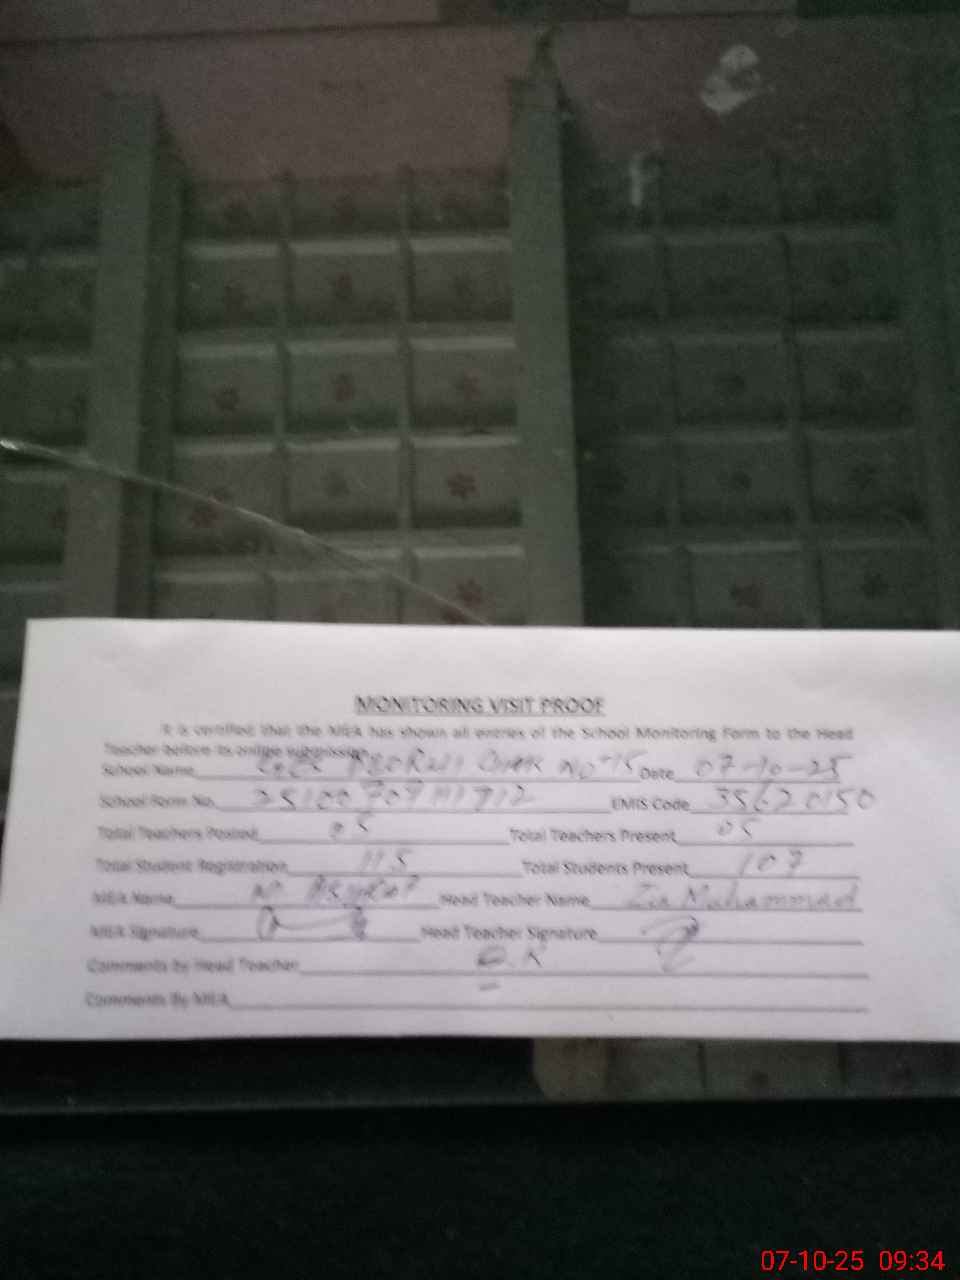 MONITORING VISIT PROOF
It is certified that the MEA has shown all entries of the School Monitoring Form to the Head
Teacher before its online submission.
School Name Chak No-15 Date 07-10-25
School Form No. EMIS Code 35620150
Total Teachers Posted 05 Total Teachers Present 05
Total Student Registration 115 Total Students Present 107
MEA Name Head Teacher Name Zia Muhammad
MEA Signature Head Teacher Signature
Comments by Head Teacher O.K
Comments By MEA
07-10-25 09:34